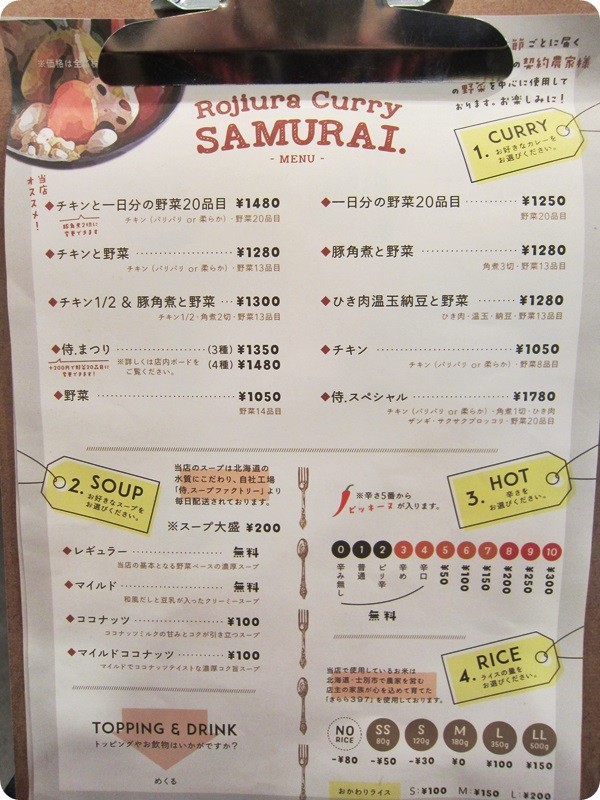 ※価格は全
節ごとに届く
の契約農家様
の野菜を中心に使用して
おります。お楽しみに!
Rojiura Curry
SAMURAI.
- MENU -
1. CURRY
お好きなカレーを
お選びください。
当店
オススメ!
◆チキンと一日分の野菜20品目 ¥1480
チキン(パリパリ or 柔らか)・野菜20品目
豚角煮2切に
変更できます
◆チキンと野菜 ¥1280
チキン(パリパリ or 柔らか)・野菜13品目
◆チキン1/2 & 豚角煮と野菜 ¥1300
チキン1/2・角煮2切・野菜13品目
◆侍.まつり (3種) ¥1350
※詳しくは店内ボードを
ご覧ください。
(4種) ¥1480
+200円で野菜20品目に
変更できます!
◆野菜 ¥1050
野菜14品目
◆一日分の野菜20品目 ¥1250
野菜20品目
◆豚角煮と野菜 ¥1280
角煮3切・野菜13品目
◆ひき肉温玉納豆と野菜 ¥1280
ひき肉・温玉・納豆・野菜13品目
◆チキン ¥1050
チキン(パリパリ or 柔らか)・野菜8品目
◆侍.スペシャル ¥1780
チキン(パリパリ or 柔らか)・角煮1切・ひき肉
ザンギ・サクサクブロッコリ・野菜20品目
2. SOUP
お好きなスープを
お選びください。
当店のスープは北海道の
水質にこだわり、自社工場
「侍.スープファクトリー」より
毎日配送されております。
※スープ大盛 ¥200
◆レギュラー 無料
当店の基本となる野菜ベースの濃厚スープ
◆マイルド 無料
和風だしと豆乳が入ったクリーミースープ
◆ココナッツ ¥100
ココナッツミルクの甘みとコクが引き立つスープ
◆マイルドココナッツ ¥100
マイルドでココナッツテイストな濃厚コク旨スープ
TOPPING & DRINK
トッピングやお飲物はいかがですか?
めくる
3. HOT
辛さを
お選びください。
※辛さ5番から
ピッキーヌが入ります。
0 1 2 3 4 5 6 7 8 9 10
辛み無し 普通 ピリ辛 辛め 辛口 ¥50 ¥100 ¥150 ¥200 ¥250 ¥300
無料
4. RICE
ライスの量を
お選びください。
当店で使用しているお米は
北海道・士別市で農家を営む
店主の家族が心を込めて育てた
「きらら397」を使用しております。
NO RICE SS 80g S 120g M 180g L 350g LL 500g
-¥80 -¥50 -¥30 ¥0 ¥100 ¥150
おかわりライス S:¥100 M:¥150 L:¥200